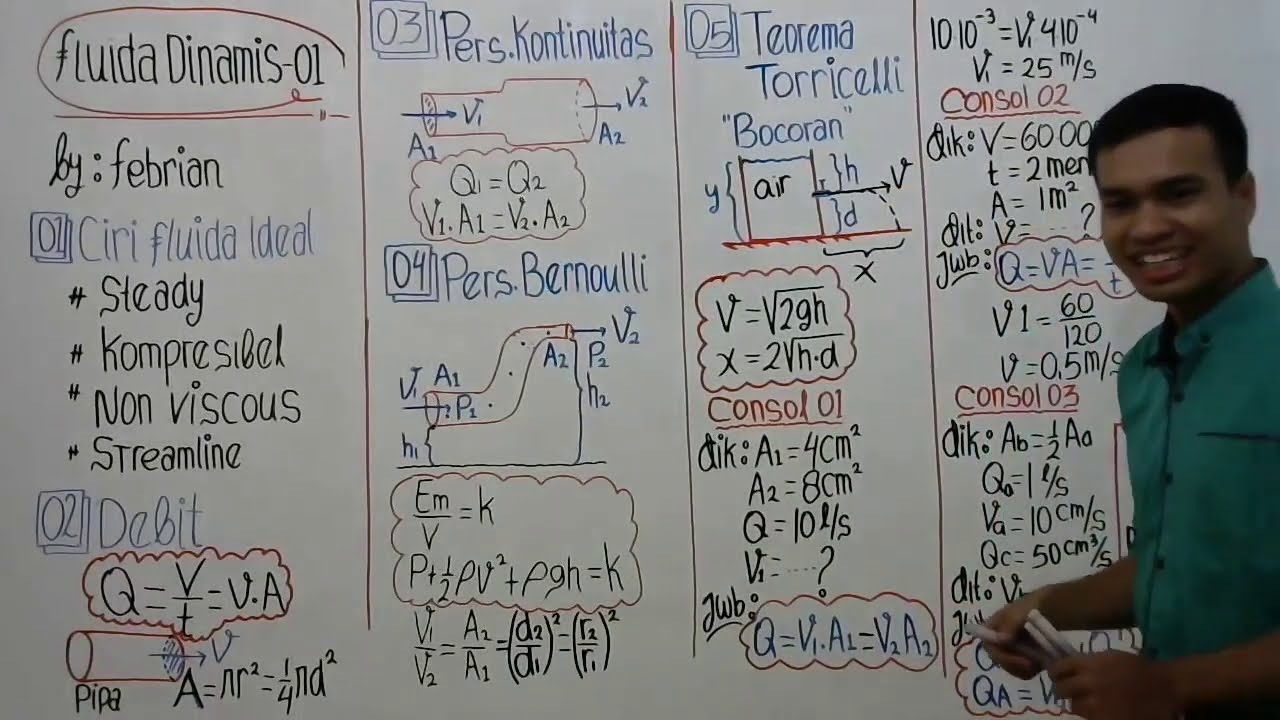 Fluida Dinamis-01
by: febrian
01 Ciri fluida Ideal
# Steady
# Kompresibel
* Non Viscous
* Streamline
02 Debit
Q = V/t = v.A
V
Pipa
A = πr² = ¼πd²
03 Pers.Kontinuitas
V1 V2
A1 A2
Q1 = Q2
V1.A1 = V2.A2
04 Pers.Bernoulli
V2
A2 P2
V1 A1
P1 h2
h1
Em/V = k
P+½ρv²+ρgh = k
V1/V2 = A2/A1 = (d2/d1)² = (r2/r1)²
05 Teorema
Torricelli
"Bocoran"
y air h V
d
x
V = √2gh
x = 2√h.d
Consol 01
dik: A1 = 4cm²
A2 = 8cm²
Q = 10 l/s
V1 = ....?
Jwb:
Q = V1.A1 = V2 A2
10 10⁻³ = V1 4 10⁻⁴
V1 = 25 m/s
Consol 02
dik: V = 60 00
t = 2 men
A = 1m²
dit: V = ....?
Jwb: Q = VA = /t
V 1 = 60/120
V = 0,5 m/s
Consol 03
dik: Ab = ½Aa
Qa = 1 l/s
Va = 10 cm/s
Qc = 50 cm³/s
dit: V
QA = V